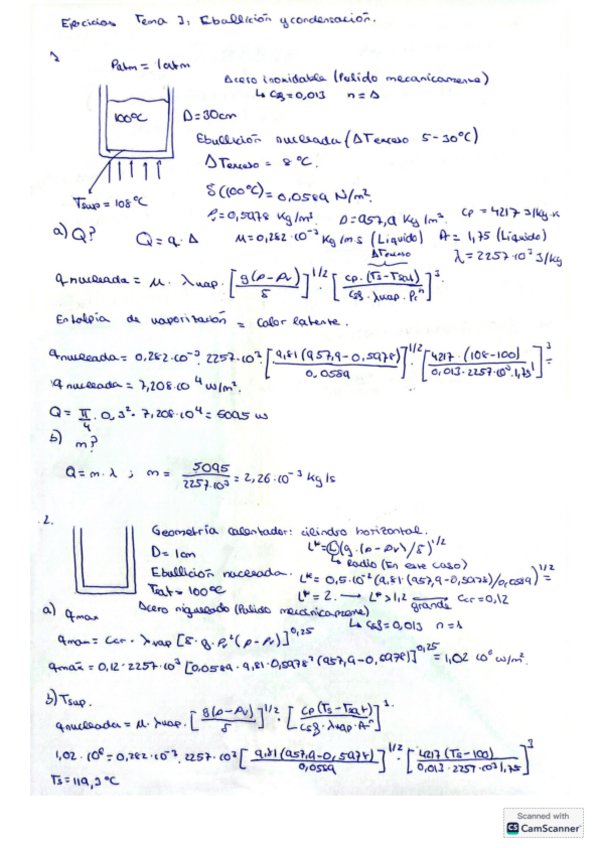 Ejercicios Tema 3: Ebullición y condensación.
1
Patm = 1atm
Acero inoxidable (Pulido mecánicamente)
↳ Csf = 0,013 n = 1
100°C
D = 30cm
Ebullición nucleada (ΔTexceso 5-30°C)
ΔTexceso = 8°C.
Tsup = 108°C
δ(100°C) = 0,0589 N/m².
ρv = 0,5978 Kg/m³. ρ = 957,9 Kg/m³. cp = 4217 J/kg·K
a) Q? Q = q · A μ = 0,282·10⁻³ Kg/m·s (Líquido) Pr = 1,75 (Líquido)
λ = 2257·10³ J/kg
ΔTexceso
qnucleada = μ · λvap · [g(ρ-ρv)/δ]^1/2 · [cp·(Ts-Tsat)/Csf·λvap·Pr^n]^3
Entalpía de vaporización = calor latente.
qnucleada = 0,282·10⁻³ · 2257·10³ · [9,81(957,9-0,5978)/0,0589]^1/2 · [4217·(108-100)/0,013·2257·10³·1,75¹]^3 =
qnucleada = 7,208·10⁴ w/m².
Q = π/4 · 0,3² · 7,208·10⁴ = 5095 w
b) m?
Q = m·λ ; m = 5095/2257·10³ = 2,26·10⁻³ Kg/s
2.
Geometría calentador: cilindro horizontal.
D = 1cm
L* = L(g·(ρ-ρv)/δ)^1/2
↳ Radio (En este caso)
Ebullición nucleada.
L* = 0,5·10⁻²(9,81(957,9-0,5978)/0,0589)^1/2 =
Tsat = 100°C
L* = 2. → L* > 1,2 grande → Ccr = 0,12
a) qmax
Acero niquelado (Pulido mecánicamente)
↳ Csf = 0,013 n = 1
qmax = Ccr · λvap [δ·g·ρv²(ρ-ρv)]^0,25
qmax = 0,12·2257·10³ [0,0589·9,81·0,5978²(957,9-0,5978)]^0,25 = 1,02·10⁶ w/m².
b) Tsup.
qnucleada = μ·λvap·[g(ρ-ρv)/δ]^1/2 · [cp(Ts-Tsat)/Csf·λvap·Pr^n]^3.
1,02·10⁶ = 0,282·10⁻³·2257·10³ [9,81(957,9-0,5978)/0,0589]^1/2 · [4217(Ts-100)/0,013·2257·10³·1,75]^3
Ts = 119,3°C
Scanned with
CS CamScanner